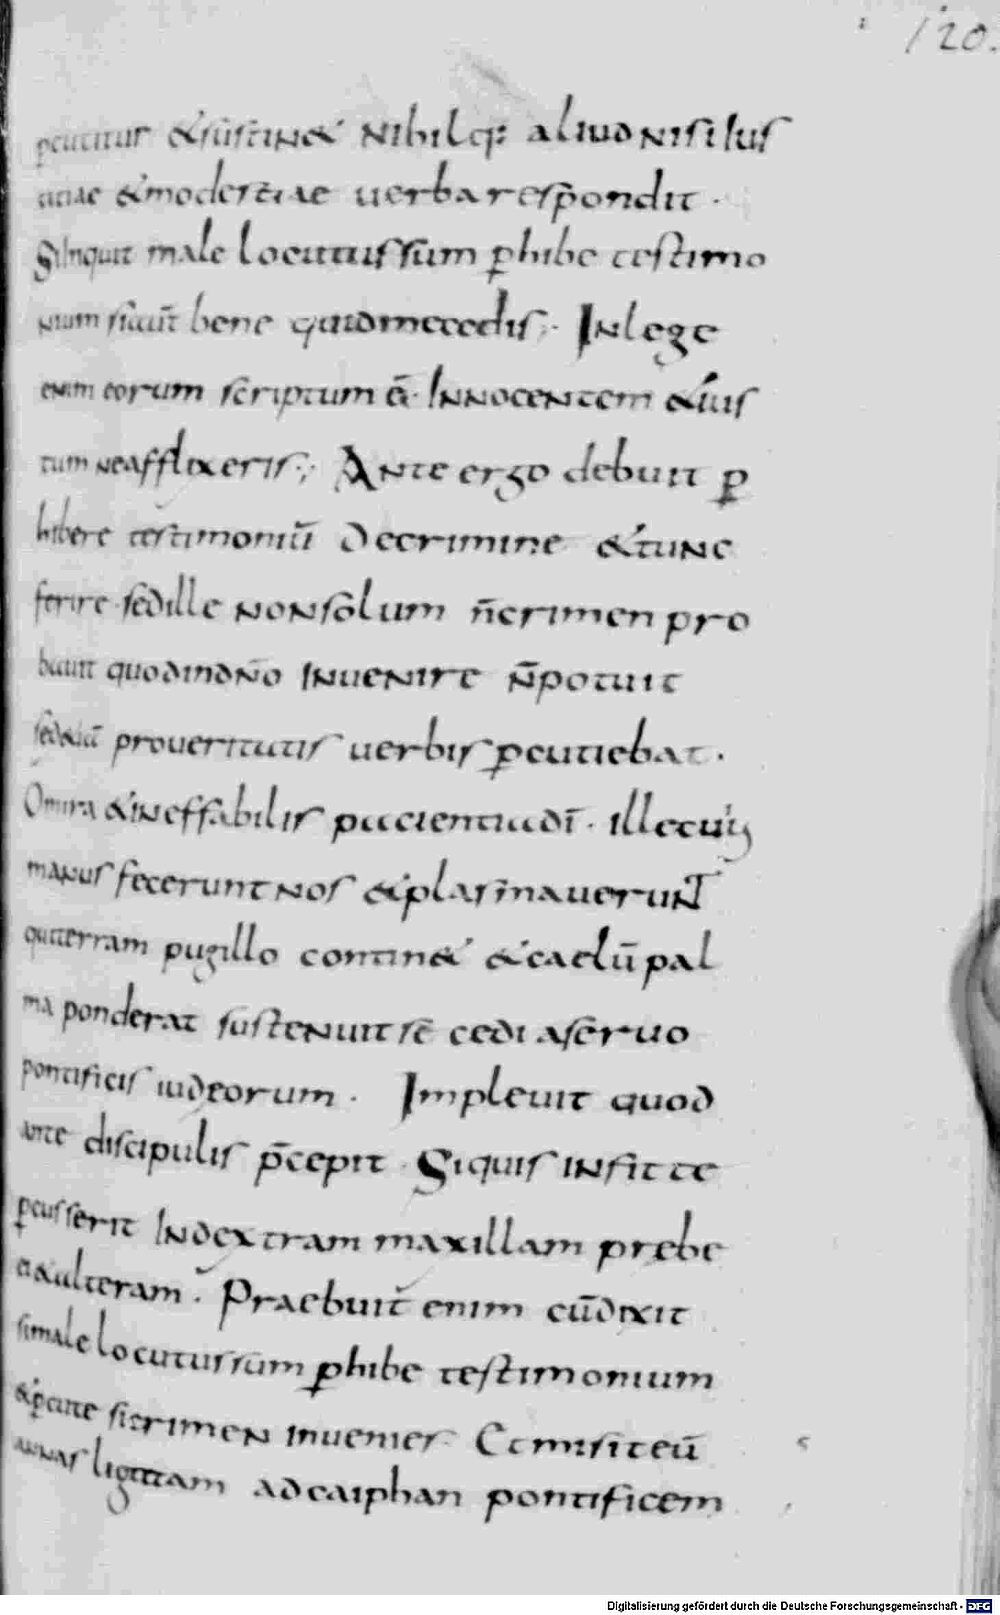 120.
p̲cutitur &sustin& nihilq; aliud nisi ius
titiae &modestiae uerba respondit ·
Si inquit male locutus sum p̲hibe testimo
nium sicut̄ bene quid me cedis ;· In lege
enim eorum scriptum ē· Innocentem &ius
tum ne afflixeris ;· Ante ergo debuit p̲
hibere testimoniū de crimine &tunc
ferire · sed ille non solum n̄ crimen pro
bauit quod in dn̄o inuenire n̄ potuit
sed &iā pro ueritatis uerbis p̲cutiebat ·
O mira &ineffabilis pacientia dī · ille cuius
manus fecerunt nos &plasmauerunt
qui terram pugillo contin& &caelū pal
ma ponderat sustenuit sē cedi a seruo
pontificis iudeorum · Impleuit quod
ante discipulis p̄cepit · Si quis in fit te
p̲cusserit in dextram maxillam prebe
ei &alteram · Praebuit enim cū dixit
si male locutus sum p̲hibe testimonium
&p̲cute si crimen inuenies · Et misit eū
annas ligatam ad caiphan pontificem
Digitalisierung gefördert durch die Deutsche Forschungsgemeinschaft - DFG